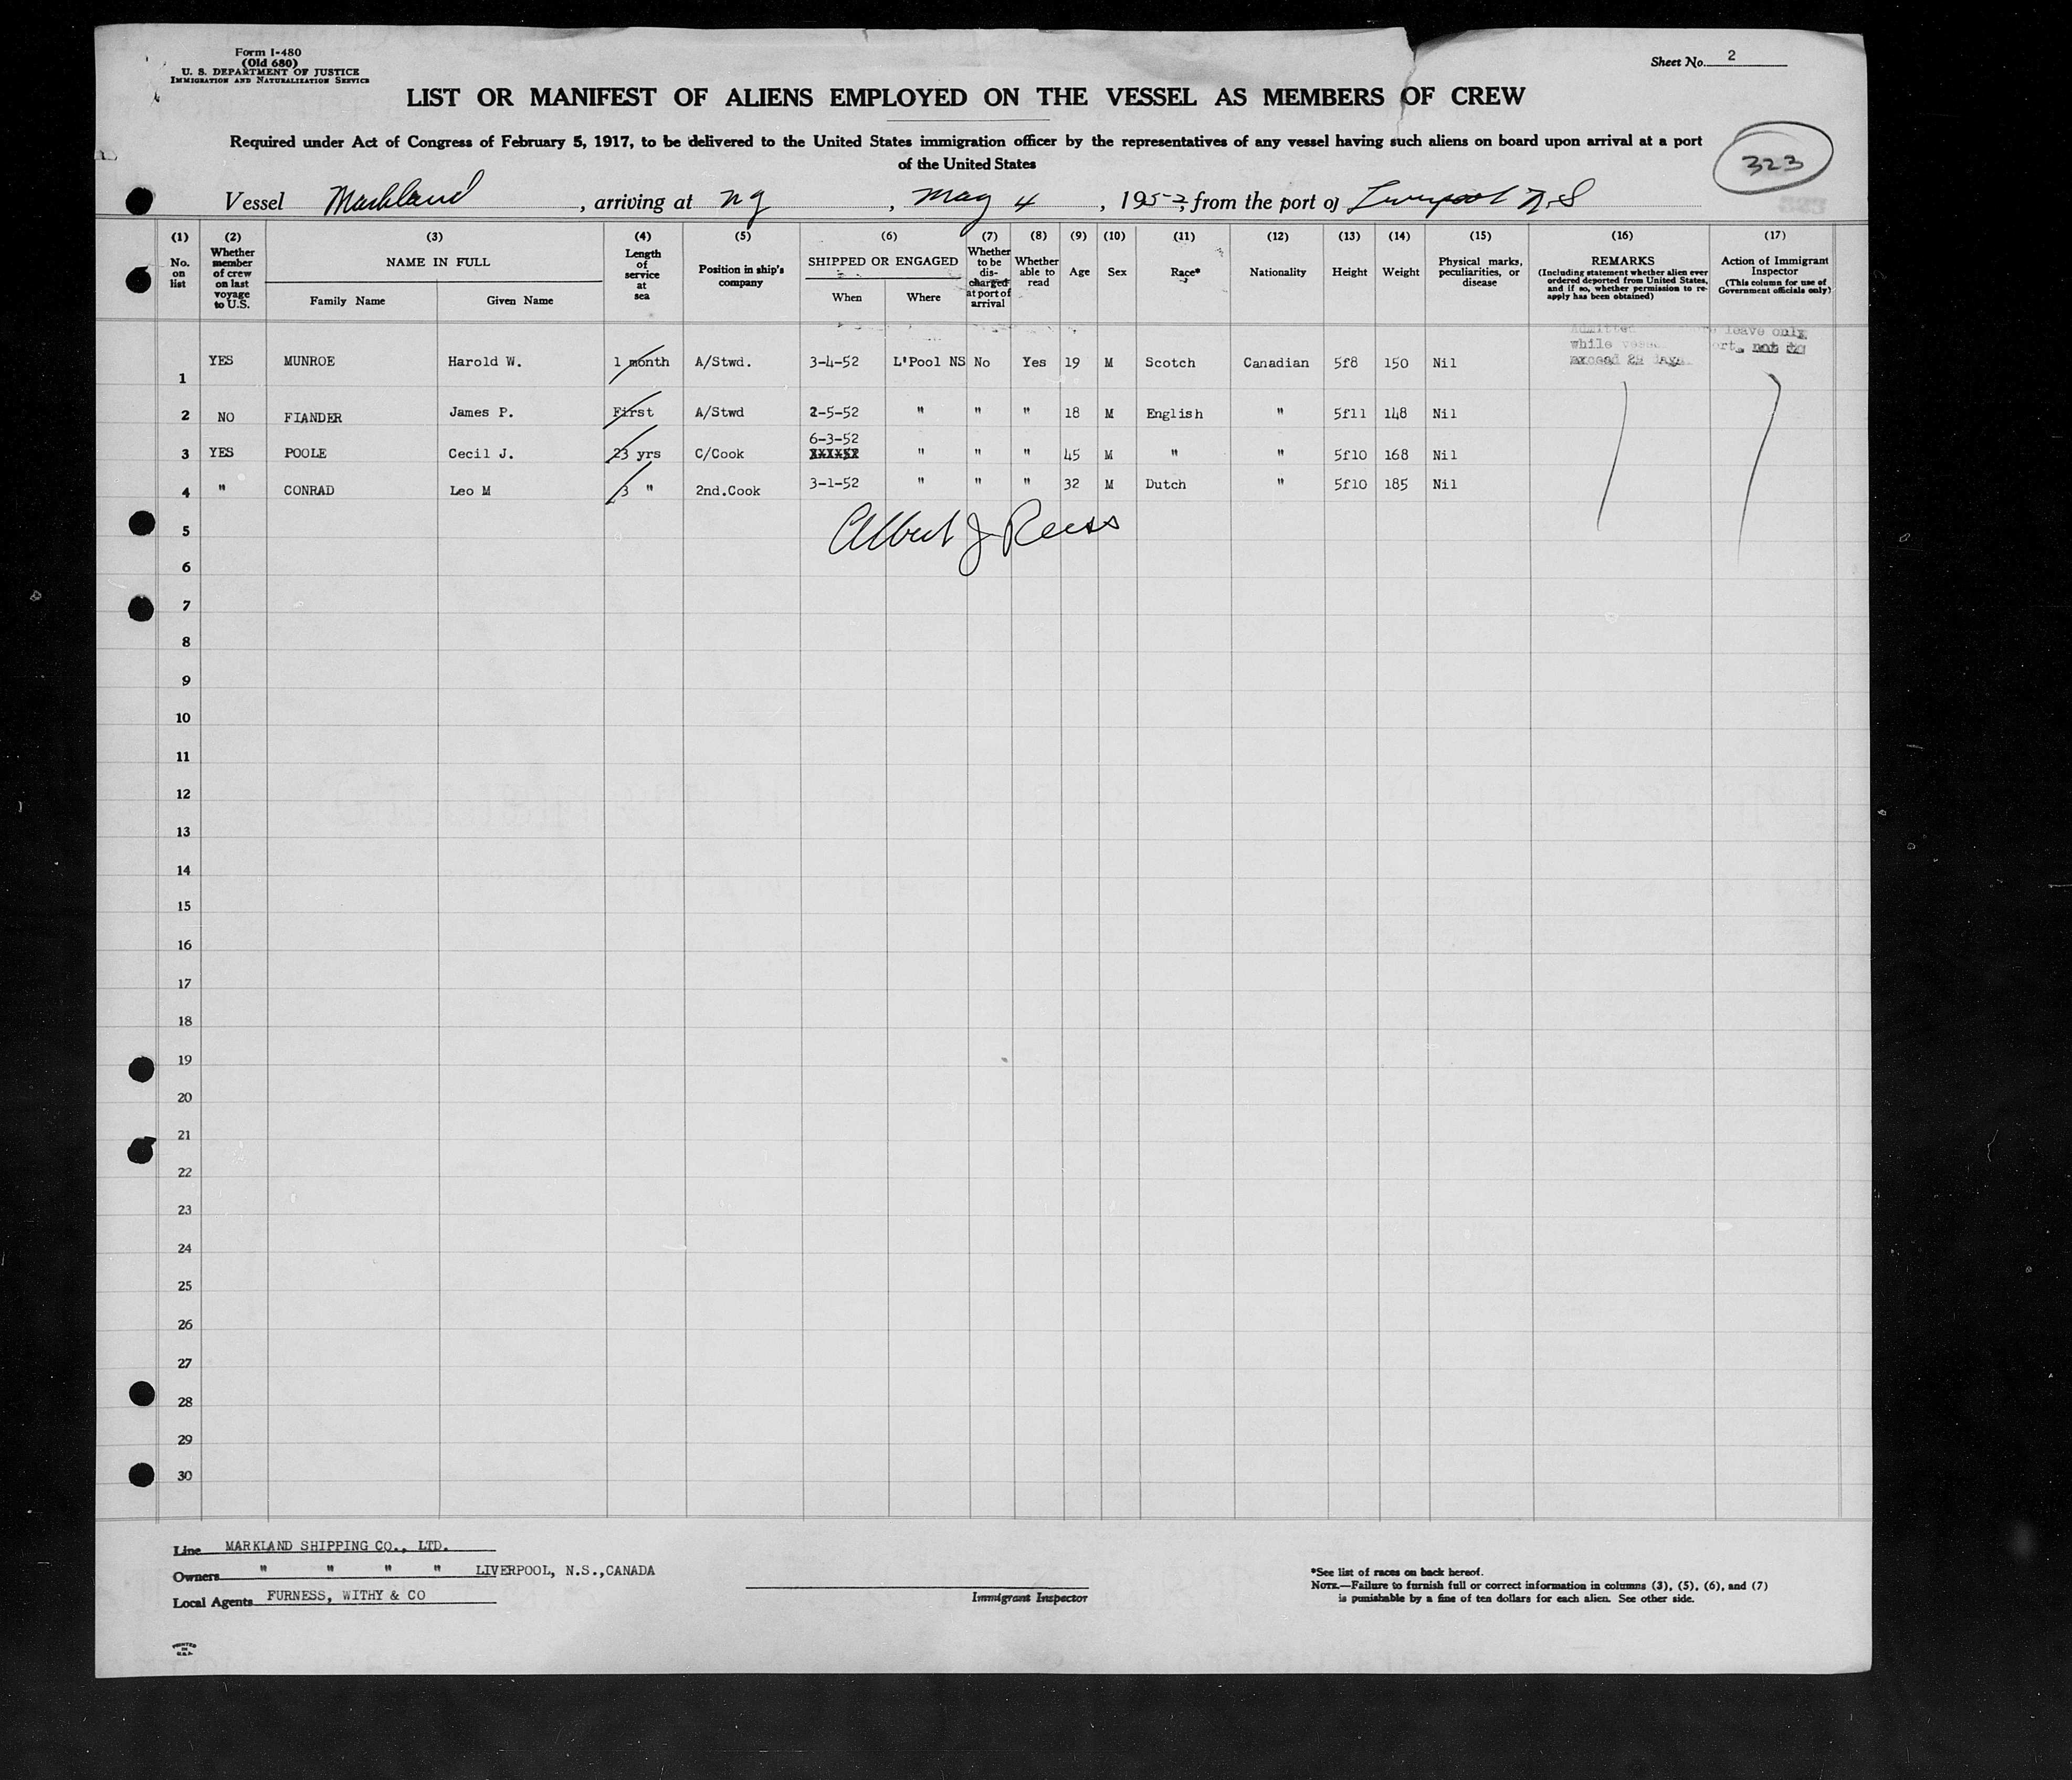 Form I-480
(Old 680)
U. S. DEPARTMENT OF JUSTICE
IMMIGRATION AND NATURALIZATION SERVICE
Sheet No. 2
LIST OR MANIFEST OF ALIENS EMPLOYED ON THE VESSEL AS MEMBERS OF CREW
Required under Act of Congress of February 5, 1917, to be delivered to the United States immigration officer by the representatives of any vessel having such aliens on board upon arrival at a port
of the United States
323
Vessel Markland, arriving at ny, May 4, 1952, from the port of Liverpool N.S
(1) No. on list
(2) Whether member of crew on last voyage to U.S.
(3) NAME IN FULL
Family Name Given Name
(4) Length of service at sea
(5) Position in ship's company
(6) SHIPPED OR ENGAGED
When Where
(7) Whether to be discharged at port of arrival
(8) Whether able to read
(9) Age
(10) Sex
(11) Race*
(12) Nationality
(13) Height
(14) Weight
(15) Physical marks, peculiarities, or disease
(16) REMARKS
(Including statement whether alien ever ordered deported from United States, and if so, whether permission to re-apply has been obtained)
(17) Action of Immigrant Inspector
(This column for use of Government officials only)
Admitted leave only
while ort, not to
exceed 29 days
1 YES MUNROE Harold W. 1 month A/Stwd. 3-4-52 L'Pool NS No Yes 19 M Scotch Canadian 5f8 150 Nil
2 NO FIANDER James P. First A/Stwd 2-5-52 " " " 18 M English " 5f11 148 Nil
6-3-52
3 YES POOLE Cecil J. 23 yrs C/Cook " " " 45 M " " 5f10 168 Nil
4 " CONRAD Leo M 3 " 2nd.Cook 3-1-52 " " " 32 M Dutch " 5f10 185 Nil
Albert J Reess
5
6
7
8
9
10
11
12
13
14
15
16
17
18
19
20
21
22
23
24
25
26
27
28
29
30
Line MARKLAND SHIPPING CO., LTD.
Owners " " " " LIVERPOOL, N.S.,CANADA
Local Agents FURNESS, WITHY & CO
Immigrant Inspector
*See list of races on back hereof.
NOTE.—Failure to furnish full or correct information in columns (3), (5), (6), and (7)
is punishable by a fine of ten dollars for each alien. See other side.
PRINTED
IN
U.S.A.